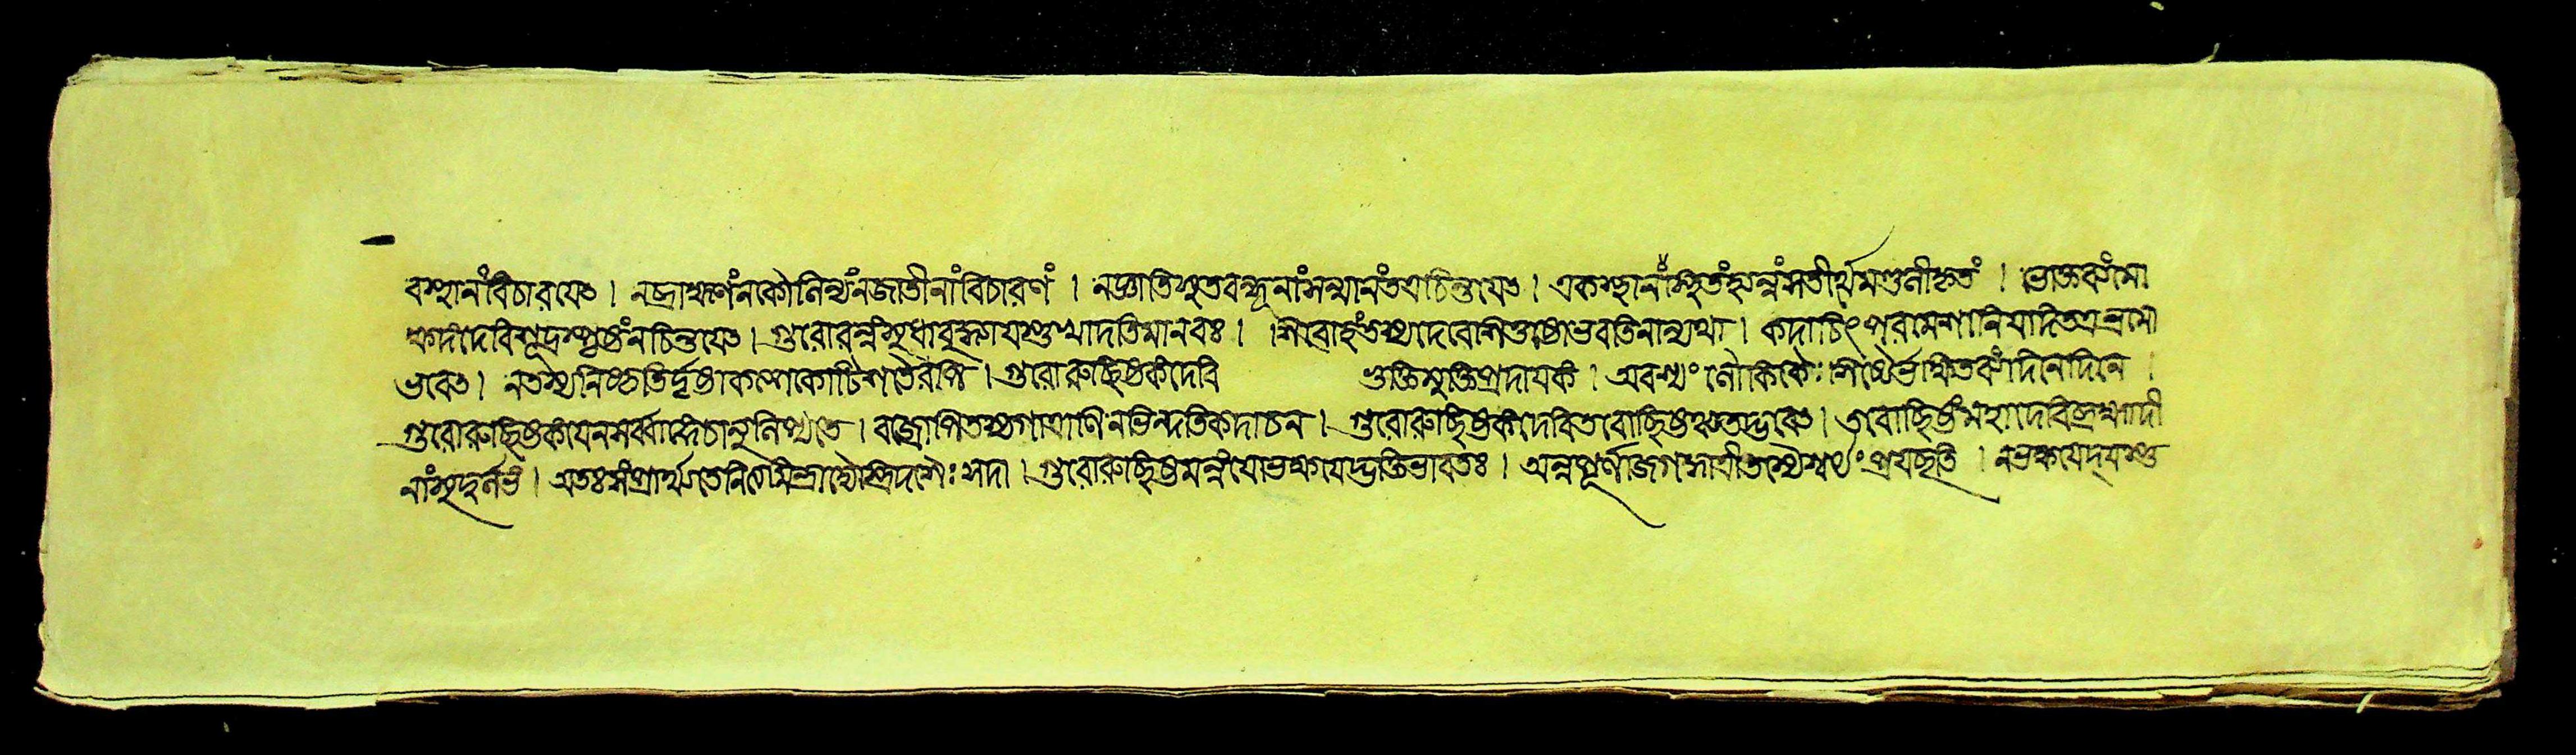 বস্থানাংবিচারযেৎ। নব্রাহ্মণংনকৌলিন্যংনজাতীনাংবিচারণং। নজ্ঞাতিসুতবন্ধূনাংসন্মানংতত্রচিন্তযেৎ। একস্থানাংস্থিতংহ্যন্নংসতীর্থমণ্ডলীকৃতং। ভোক্তব্যংমো
ক্ষদংদেবিশূদ্রস্পৃষ্টংনচিন্তযেৎ। গুরোরন্নংসুধাবুদ্ধ্যাযস্তুখাদতিমানবঃ। শিবোহংতস্যদেবেশিতুষ্টোভবতিনান্যথা। কদাচিৎপরমেশানিযদিতত্রভ্রমো
ভবেৎ। নতস্যনিষ্কৃতির্দৃষ্টাকল্পকোটিশতৈরপি। গুরোরুচ্ছিষ্টকংদেবি ভুক্তিমুক্তিপ্রদাযকং। অবশ্যং লৌকিকৈঃ শিষ্যৈর্ভক্ষিতব্যংদিনেদিনে।
গুরোরুচ্ছিষ্টকংযেনসর্ব্বাঙ্গেচানুলিপ্যতে। বজ্রোপিতস্যগাত্রাণিনভিন্দতিকদাচন। গুরোরুচ্ছিষ্টকংদেবিতবোচ্ছিষ্টঞ্চতদ্ভবেৎ। তবোচ্ছিষ্টংমহাদেবিব্রহ্মাদী
নাংসুদুর্লভং। অতঃসংপ্রার্থ্যতেনিত্যমিন্দ্রাদ্যৈস্ত্রিদশৈঃ সদা। গুরোরুচ্ছিষ্টমন্নংযোভক্ষযেদ্ভক্তিভাবতঃ। অন্নপূর্ণাজগদ্ধাত্রীতস্যৈশ্বর্যং প্রযচ্ছতি। নভক্ষযেদ্যস্তু